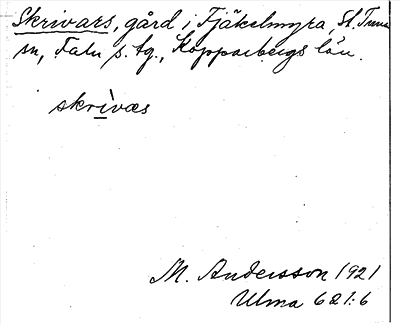 Skrivars, gård i Fjäkelmyra, St. Tuna
sn, Falu s. tg., Kopparbergs län.
skrivæs
M. Andersson 1921
Ulma 621:6